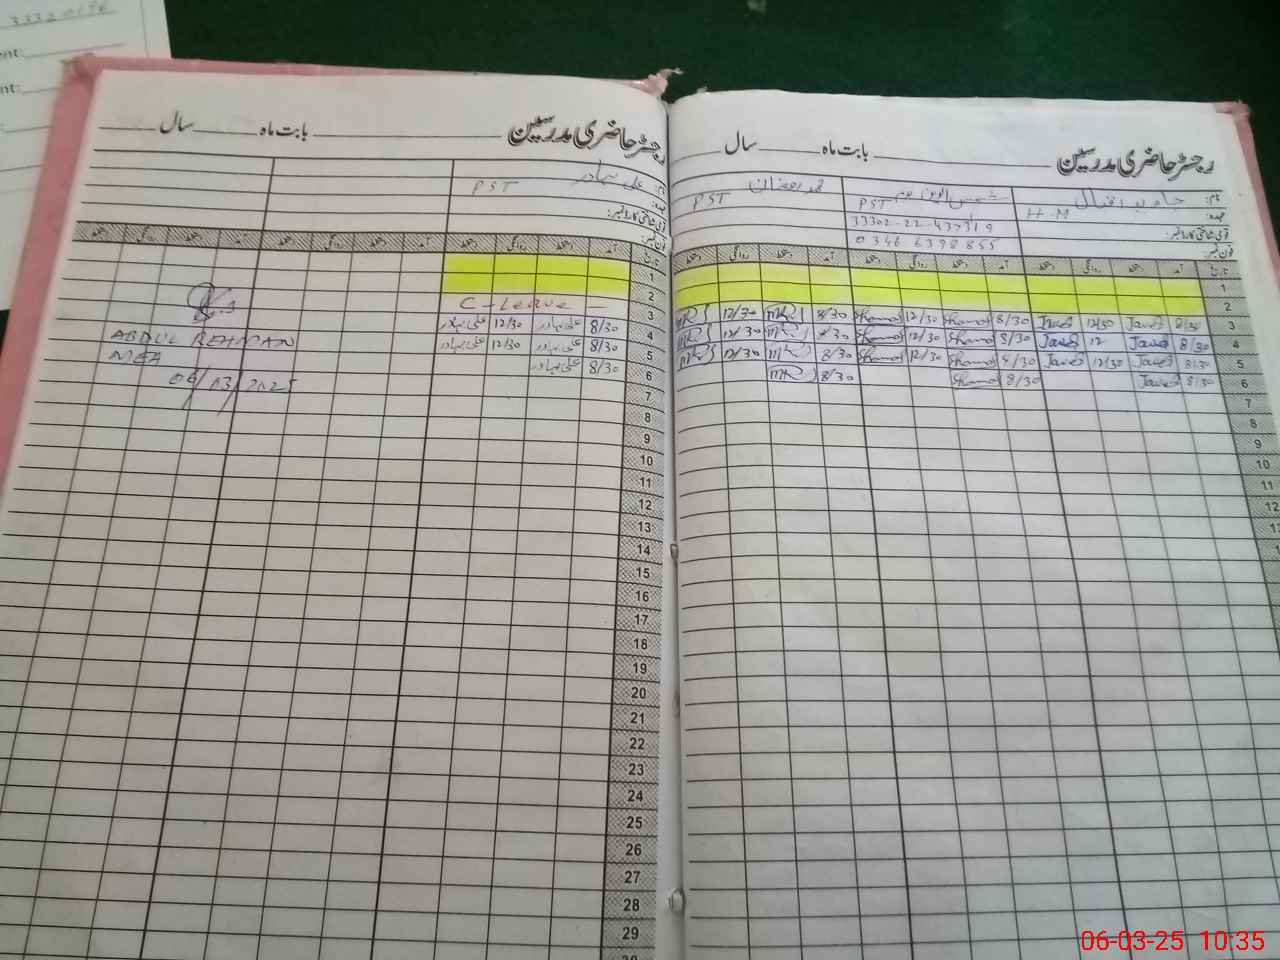 33320196
رجسٹر حاضری مدرسین بابت ماه سال
نام: جاوید اقبال شمس الدین محمد رمضان
عہدہ: H.M PST PST
قومی شناختی کارڈ نمبر:
فون نمبر: 0346 6398855
تاریخ آمد دستخط روانگی دستخط آمد دستخط روانگی دستخط آمد دستخط روانگی دستخط
1
2
3 8/30 Javed 12/30 Javed 8/30 Shams 12/30 Shams 8/30 12/30
4 8/30 Javed 12 Javed 8/30 Shams 12/30 Shams 8/30 12/30
5 8/30 Javed 12/30 Javed 8/30 Shams 12/30 Shams 8/30 12/30
6 8/30 Javed 8/30 Shams 8/30
7
8
9
10
11
12
رجسٹر حاضری مدرسین بابت ماه سال
نام: علی بہادر
عہدہ: PST
قومی شناختی کارڈ نمبر:
فون نمبر:
تاریخ آمد دستخط روانگی دستخط آمد دستخط روانگی دستخط آمد دستخط روانگی دستخط
1
2
3 C-Leave -
4 8/30 علی بہادر 12/30 علی بہادر
5 8/30 علی بہادر 12/30 علی بہادر
6 8/30 علی بہادر
7
8
9
10
11
12
13
14
15
16
17
18
19
20
21
22
23
24
25
26
27
28
29
ABDUL REHMAN
MEA
06/03/2025
06-03-25 10:35